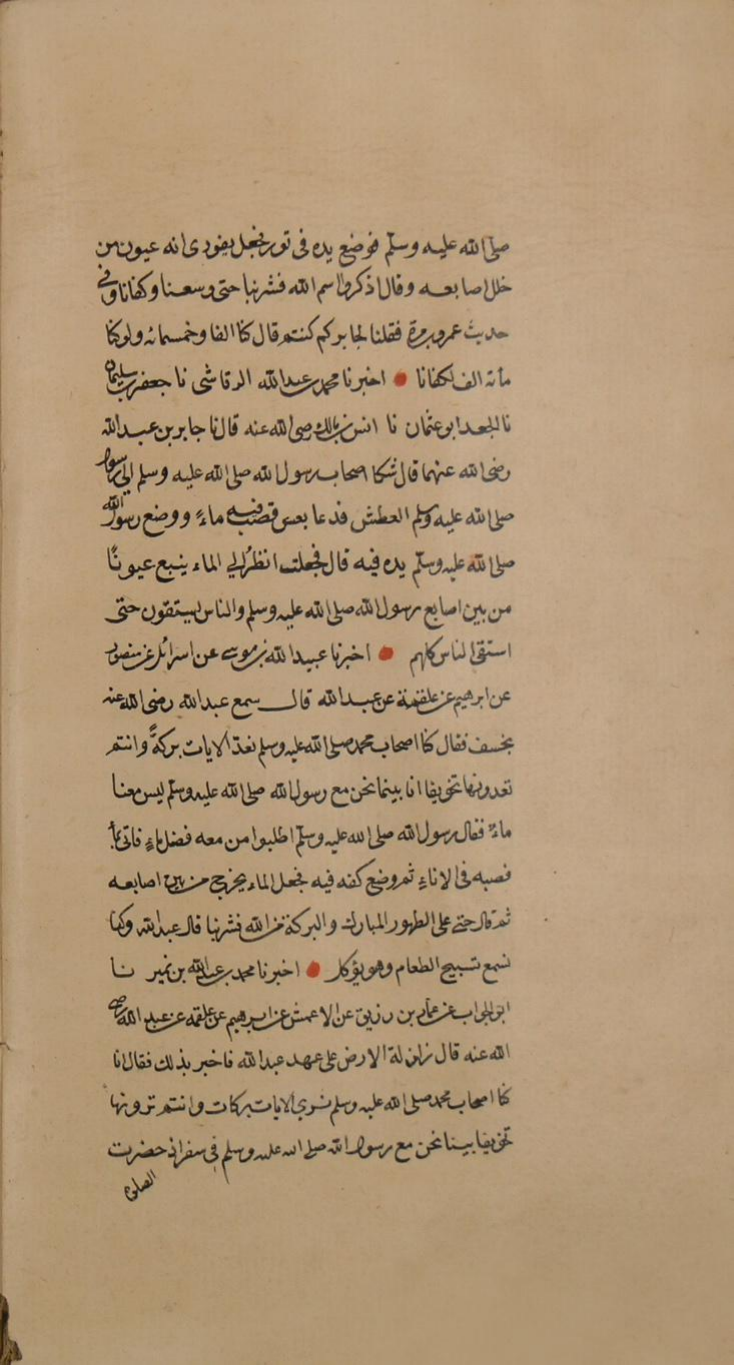 صلى الله عليه وسلم فوضع يده في تور فجعل يفور كانه عيون من
خلل اصابعه وقال اذكروا اسم الله فشربنا حتى وسعنا وكفانا وفي
حديث عمرو بن مرة فقلنا لجابر كم كنتم قال كنا الفا وخمسمائه ولو كنا
مائة الف لكفانا اخبرنا محمد بن عبد الله الرقاشي نا جعفر بن سليمان
نا الجعد ابو عثمان نا انس بن مالك رضي الله عنه قال نا جابر بن عبد الله
رضي الله عنهما قال شكا اصحاب رسول الله صلى الله عليه وسلم الى رسول
صلى الله عليه وسلم العطش فدعا بعس فصب فيه ماءً ووضع رسول الله
صلى الله عليه وسلم يده فيه قال فجعلت انظر الى الماء ينبع عيونًا
من بين اصابع رسول الله صلى الله عليه وسلم والناس يستقون حتى
استقى الناس كلهم اخبرنا عبيد الله بن موسى عن اسرائل عن منصور
عن ابرهيم عن علقمة عن عبد الله قال سمع عبد الله رضي الله عنه
بخسف فقال كنا اصحاب محمد صلى الله عليه وسلم نعد الايات بركةً وانتم
تعدونها تخويفا انا بينما نحن مع رسول الله صلى الله عليه وسلم ليس معنا
ماءٌ فقال رسول الله صلى الله عليه وسلم اطلبوا من معه فضل ماءٍ فاتي بماءٍ
فصبه في الاناءِ ثم وضع كفه فيه فجعل الماء يخرج من بين اصابعه
ثم قال حي على الطهور المبارك والبركة من الله فشربنا قال عبد الله وكنا
نسمع تسبيح الطعام وهو يؤكل اخبرنا محمد بن عبد الله بن نمير نا
ابو الجواب عن عمار بن رزيق عن الاعمش عن ابرهيم عن علقمه عن عبد الله رضي
الله عنه قال زلزلة الارض على عهد عبد الله فاخبر بذلك فقال انا
كنا اصحاب محمد صلى الله عليه وسلم نرى الايات بركات وانتم ترونها
تخويفا بينا نحن مع رسول الله صلى الله عليه وسلم في سفر اذ حضرت
الصلوة